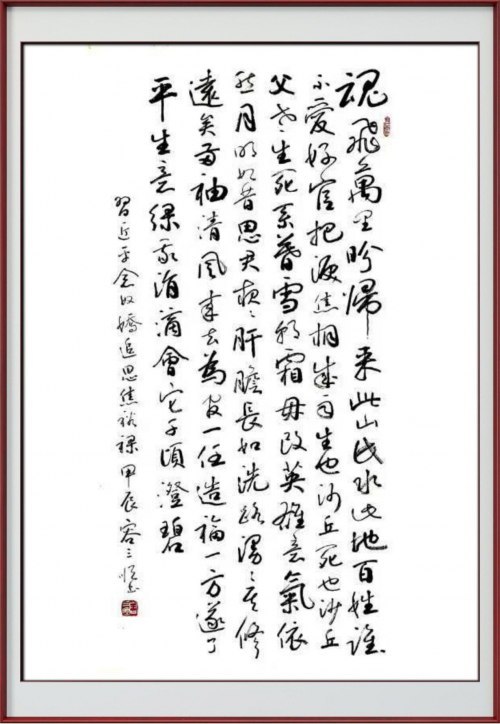 魂飛萬里盼歸来此山此水此地百姓誰
不愛好官把淚焦桐成雨生也沙丘死也沙丘
父老生死系暮雪朝霜毋改英雄意氣依
然月明如昔思君夜々肝膽長如洗路漫々其修
遠矣两袖清風来去為官一任造福一方遂了
平生意绿我涓滴會它千頃澄碧
習近平念奴嬌追思焦裕禄甲辰容